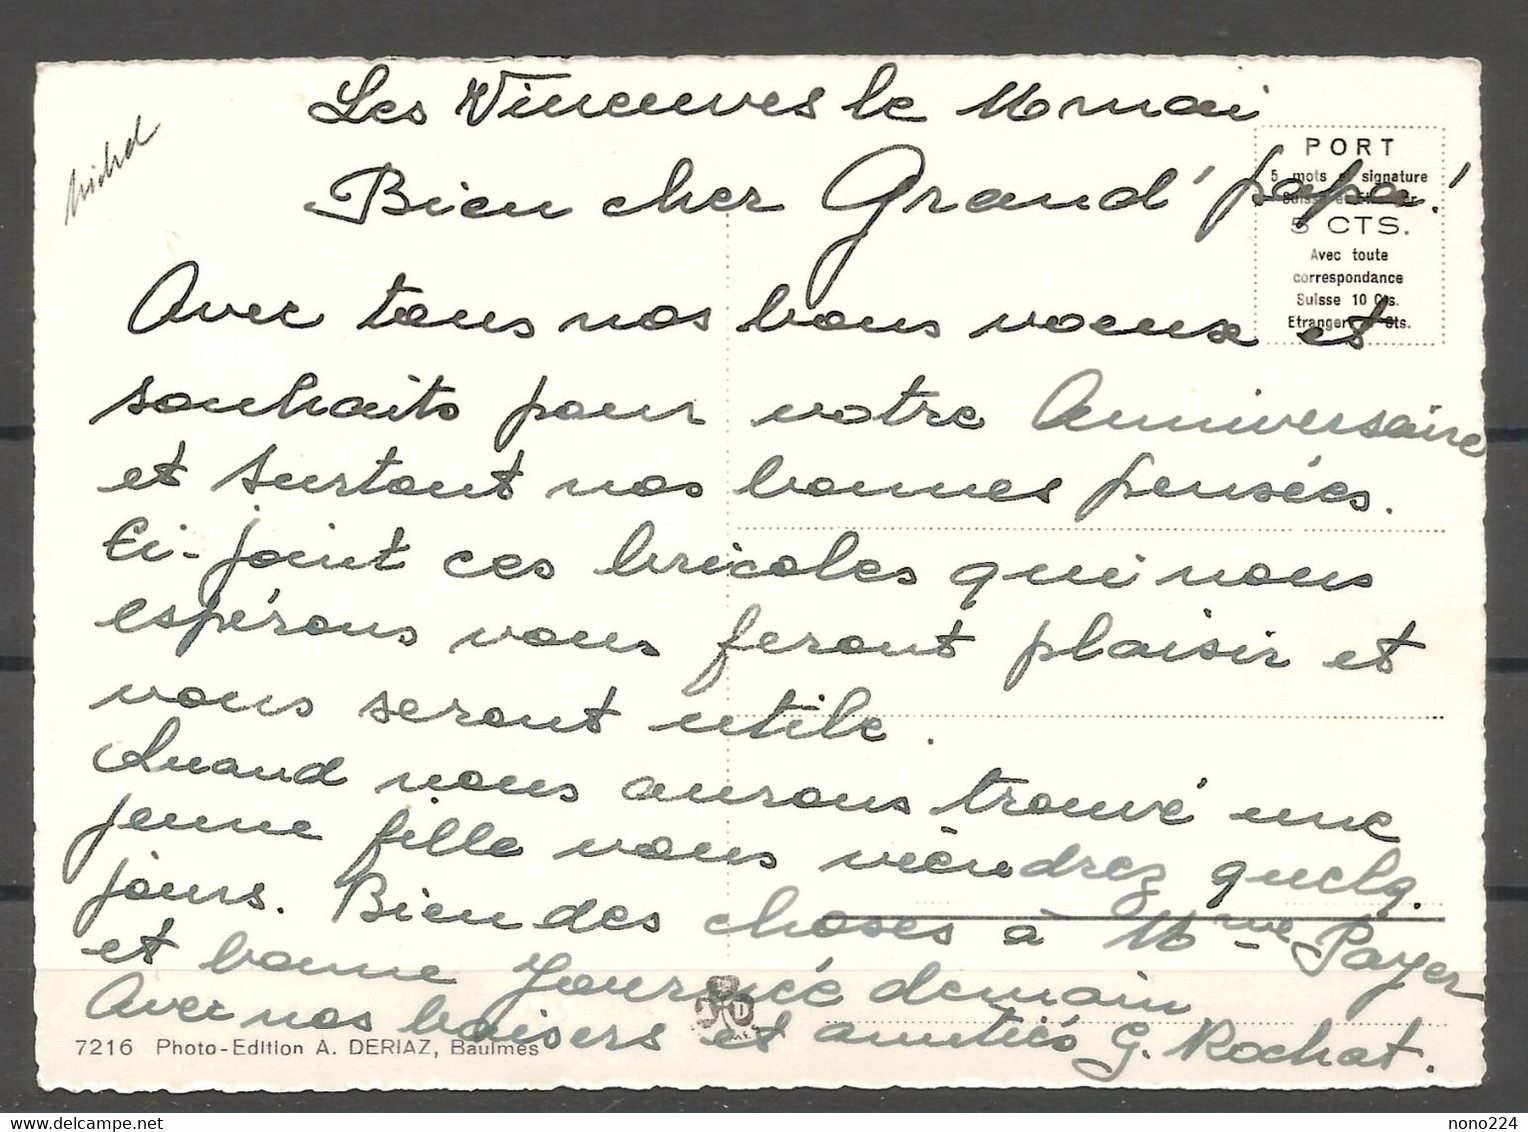 Michel
Les le 16 mai
Bien cher Grand'papa!
PORT
5 mots et signature
5 CTS.
Avec toute
correspondance
Suisse 10 Cts.
Etranger Cts.
Avec tous nos bons voeux et
souhaits pour votre Anniversaire
et surtout nos bonnes pensées.
Ci-joint ces bricoles qui nous
espérons vous feront plaisir et
vous seront utile.
Quand nous aurons trouvé une
jeune fille vous viendrez quelq.
jours. Bien des choses à Mme Payer
et bonne journée demain
Avec nos baisers et amitiés G. Rochat.
7216 Photo-Edition A. DERIAZ, Baulmes
nono224